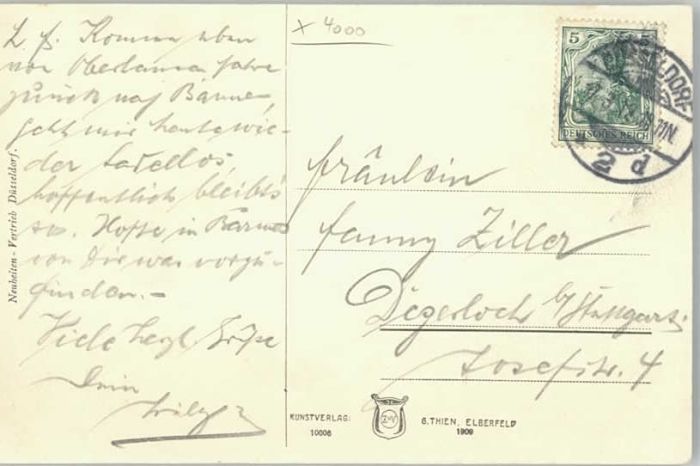 L. F. Komme eben
von Obercassel, fahre
zurück nach Barmen,
geht mir heute wie-
der tadellos,
hoffentlich bleibt's
so. Hoffe in Barmen
von Dir was vorzu-
finden.-
Viele herzl. Grüße
Dein
x 4000
Fräulein
Fanny Ziller
Degerloch b/Stuttgart.
Josefstr. 4
5
DEUTSCHES REICH
DÜSSELDORF
2 d
Neuheiten-Vertrieb Düsseldorf.
KUNSTVERLAG:
10006
G. THIEN, ELBERFELD
1909